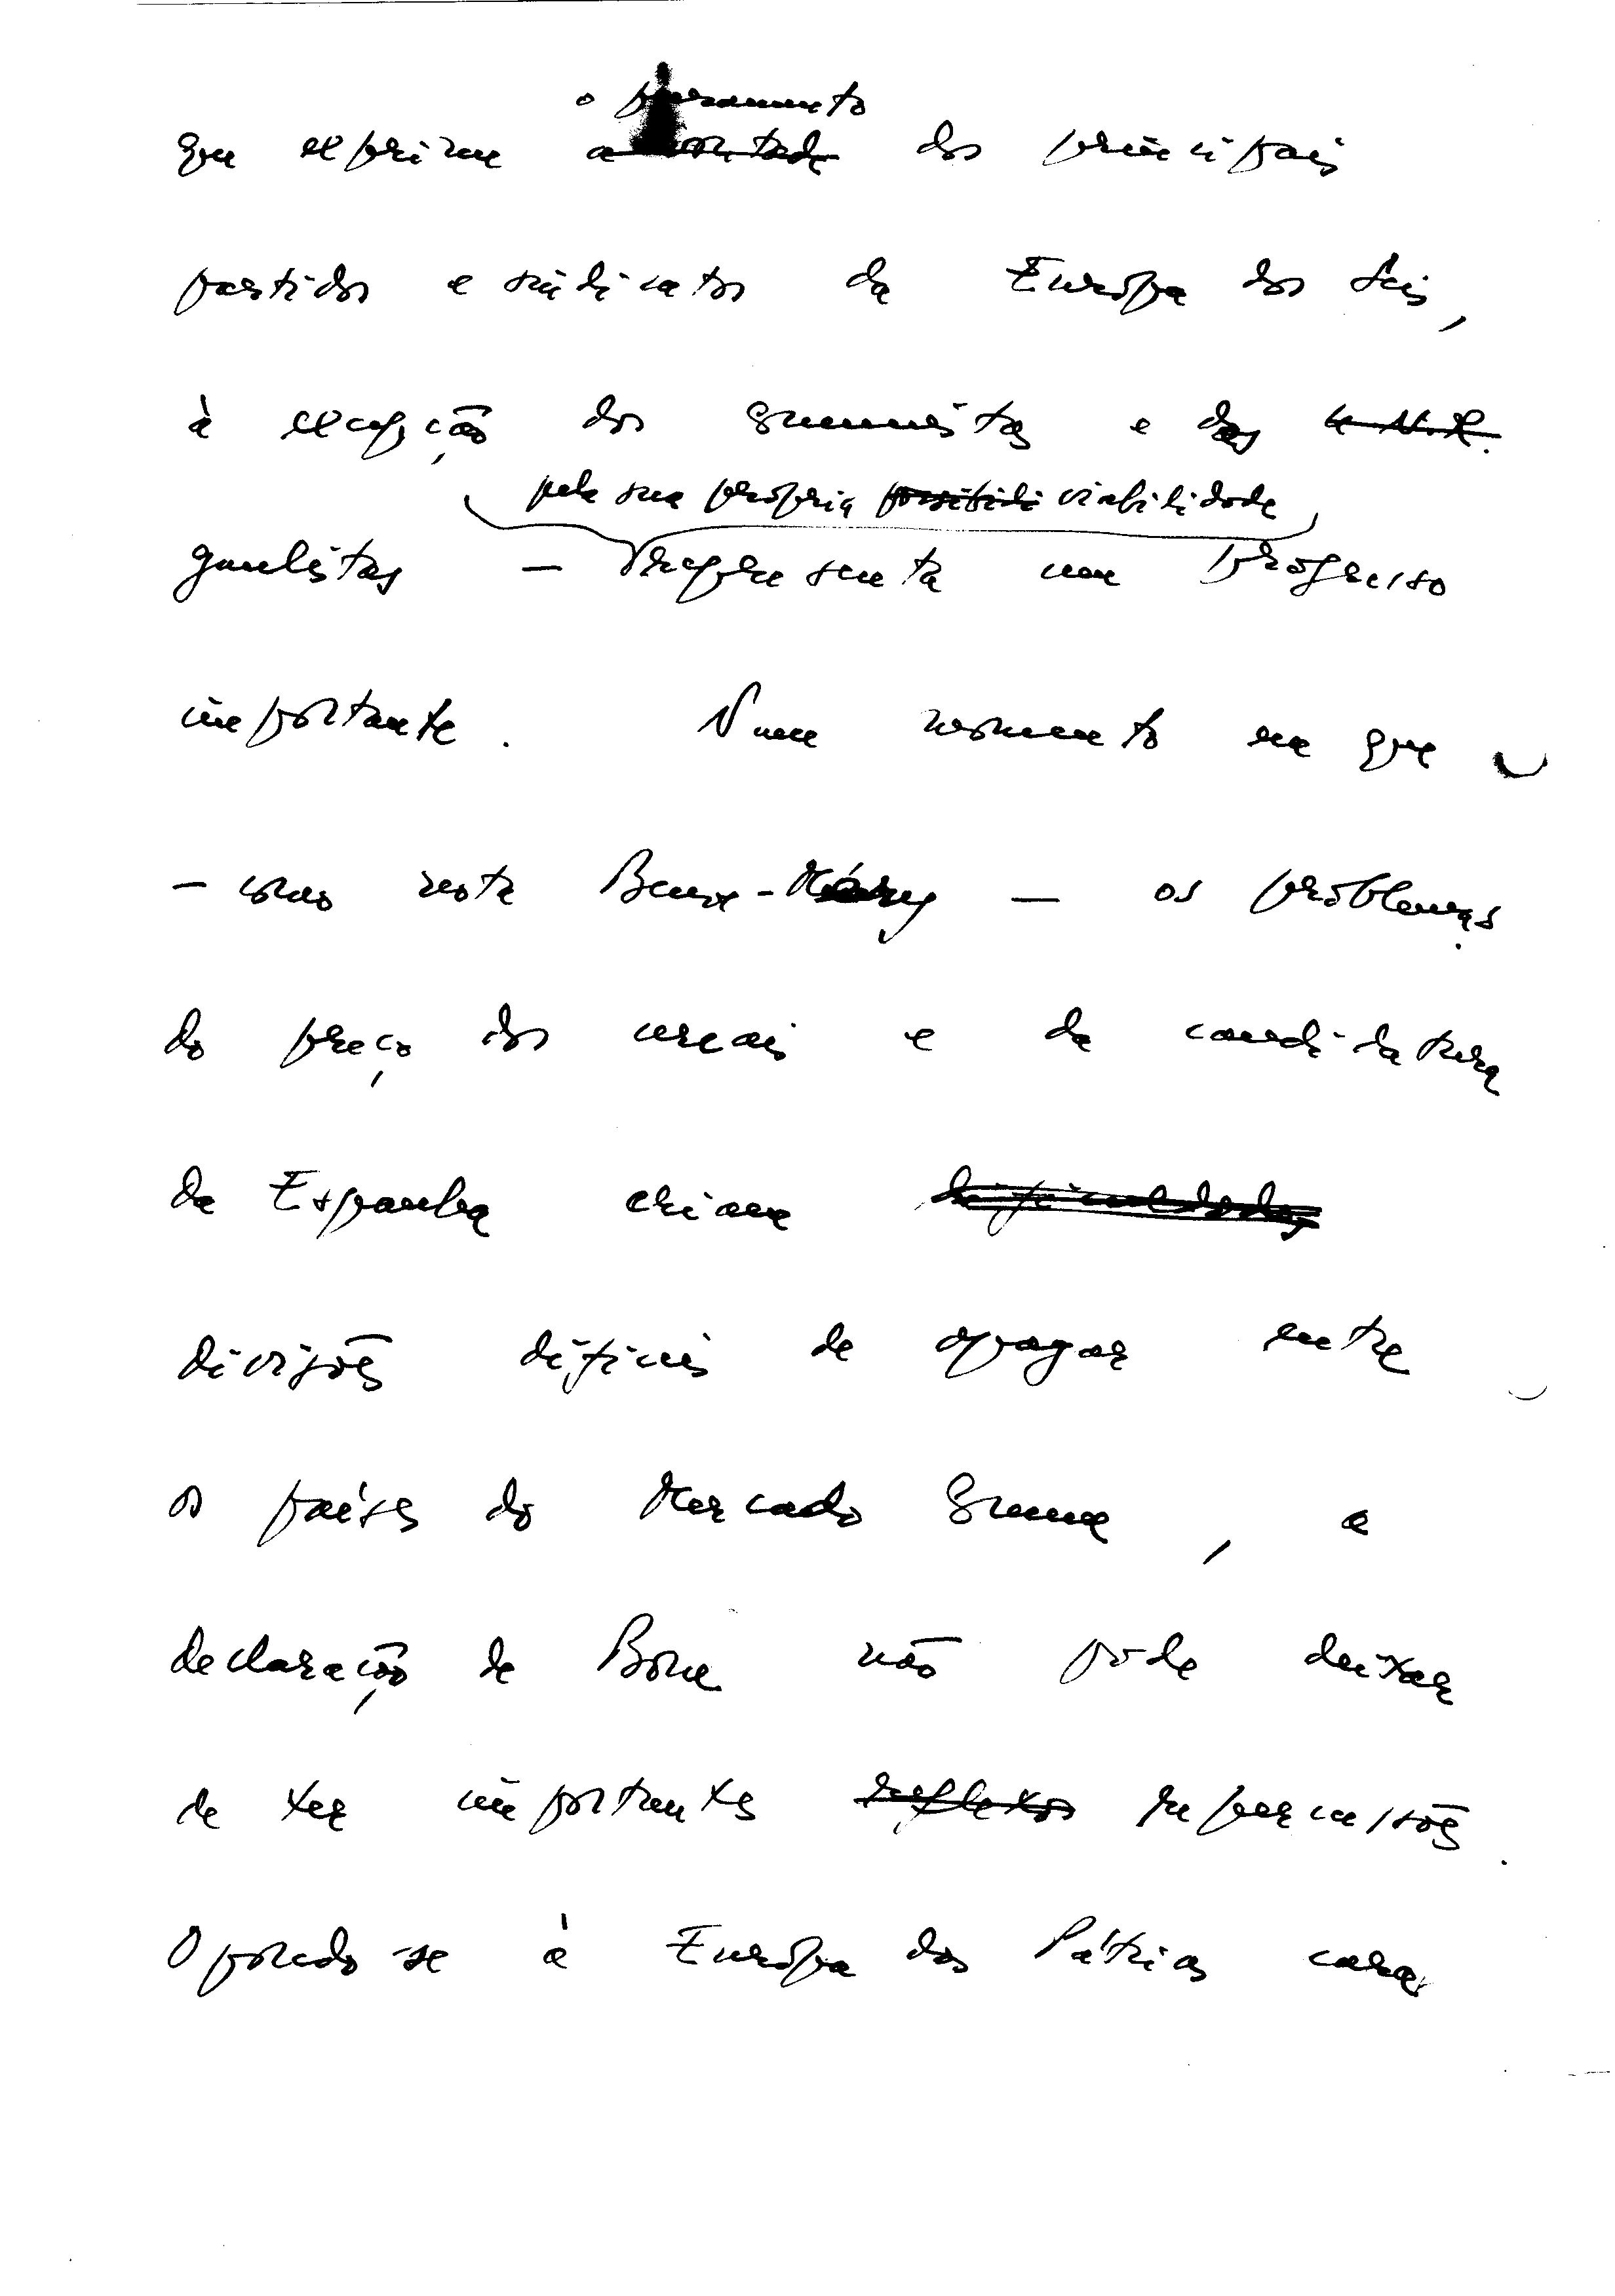 o pensamento
que exprime a vontade dos principais
partidos e sindicatos da Europa dos Seis,
à excepção dos comunistas e dos U.N.R.
pela sua própria possibili viabilidade
gaulistas — representa um progresso
importante. Num momento em que
— como nota Beuve-Méry — os problemas
do preço dos cereais e da candidatura
da Espanha criam dificuldades
divisões difíceis de apagar entre
os países do Mercado Comum, a
declaração de Bona não pode deixar
de ter importantes reflexos repercussões.
Opondo-se à Europa das Pátrias cara